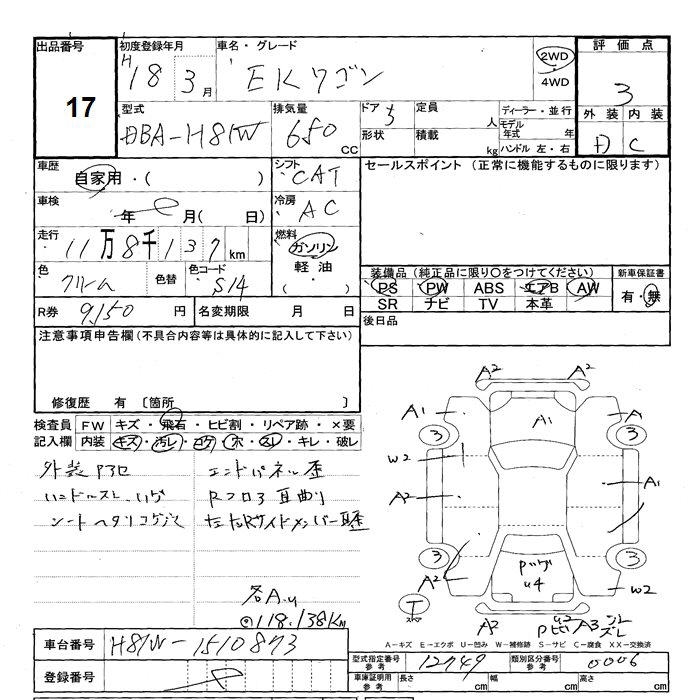 出品番号 初度登録年月 車名・グレード 評価点
17
H18 3月 EKワゴン 2WD 4WD 3
型式 排気量 ドア 定員 ディーラー・並行 外装 内装
DBA-H81W 650 CC 5 人 モデル年式 年
形状 積載 kg ハンドル 左・右 D C
車歴 自家用・( ) シフト CAT セールスポイント (正常に機能するものに限ります)
車検 年 月( 日) 冷房 AC
走行 11万8千137km 燃料 ガソリン
軽油
・( )
色 クリーム 色替 色コード S14 装備品(純正品に限り○をつけてください) 新車保証書
PS PW ABS エアB AW 有・無
SR ナビ TV 本革
R券 9,150円 名変期限 月 日 後日品
注意事項申告欄(不具合内容等は具体的に記入して下さい)
修復歴 有 〔箇所 〕
検査員 FW キズ・飛石・ヒビ割・リペア跡・×要
記入欄 内装 キズ・汚レ・コゲ・穴・スレ・キレ・破レ
外装 エンドパネル歪
ハンドルスレ
シートヘタリコゲ サイドメンバー
各A.u
118.138Km
A2 A2
A1 A1 A1
3 3
W2
A2 A1
3 3
A2 U4 W2
A2 A3
A-キズ E-エクボ U-凹み W-補修跡 S-サビ C-腐食 XX-交換済
車台番号 H81W-1510873
登録番号
型式指定番号 参考 12749 類別区分番号 参考 0006
車庫証明用 参考 長さ cm 幅 cm 高さ cm